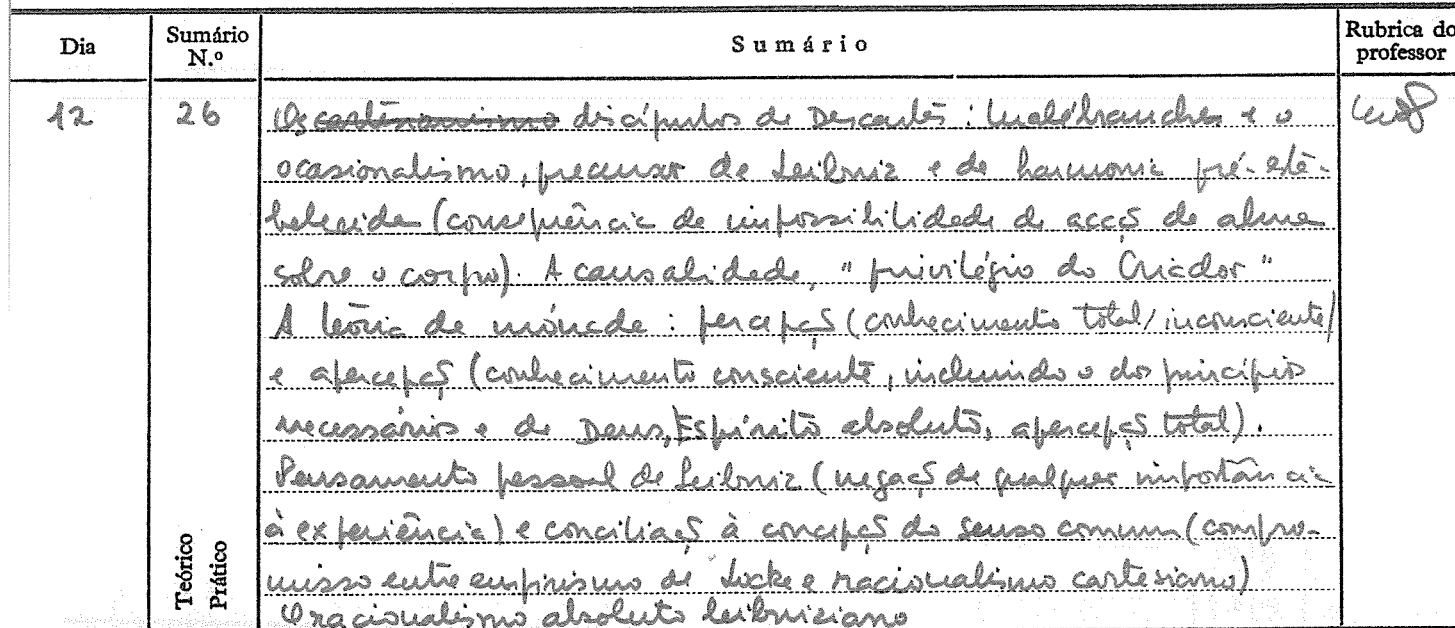 Dia Sumário N.º Sumário Rubrica do professor
12 26 Os cartesianismo discípulos de Descartes: Malebranche e o
ocasionalismo, precursor de Leibniz e da harmonia pré-esta-
belecida (consequência da impossibilidade da acção da alma
sobre o corpo). A causalidade, "privilégio do Criador"
A teoria da mónade: percepção (conhecimento total/inconsciente)
e apercepção (conhecimento consciente, incluindo o dos princípios
necessários e de Deus, Espírito absoluto, apercepção total).
Pensamento pessoal de Leibniz (negação de qualquer importância
à experiência) e conciliação à concepção do senso comum (compro-
misso entre empirismo de Locke e racionalismo cartesiano)
O racionalismo absoluto leibniziano
Teórico
Prático